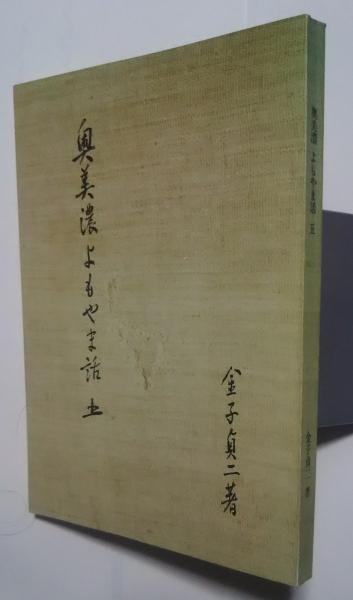 奥美濃よもやま話 五
金子貞二著
奥美濃 よもやま話 五
金子貞二 著